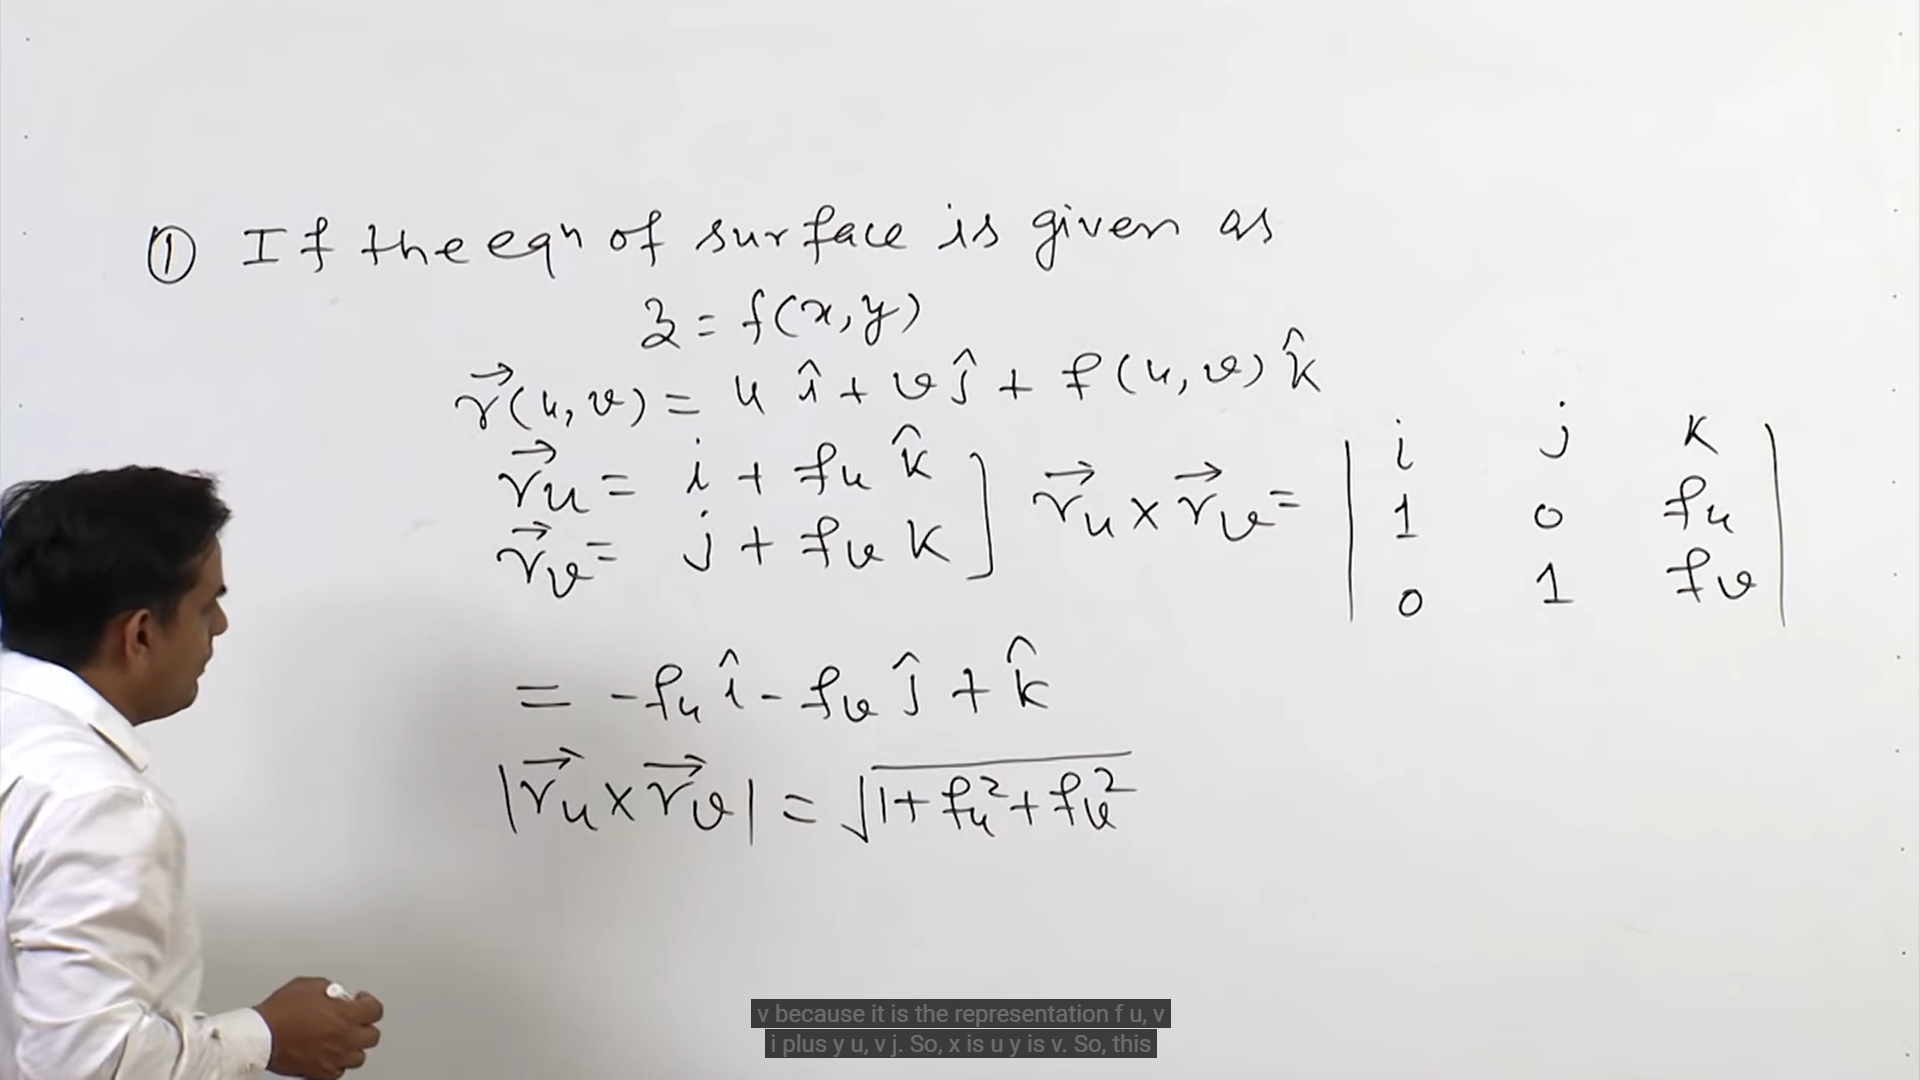 ① If the eqⁿ of surface is given as
z = f(x,y)
r⃗(u,v) = u î + v ĵ + f(u,v) k̂
r⃗u = i + fu k̂
r⃗v = j + fv k
r⃗u × r⃗v = | i j k |
| 1 0 fu |
| 0 1 fv |
= -fu î - fv ĵ + k̂
|r⃗u × r⃗v| = √1+fu²+fv²
v because it is the representation f u, v
i plus y u, v j. So, x is u y is v. So, this